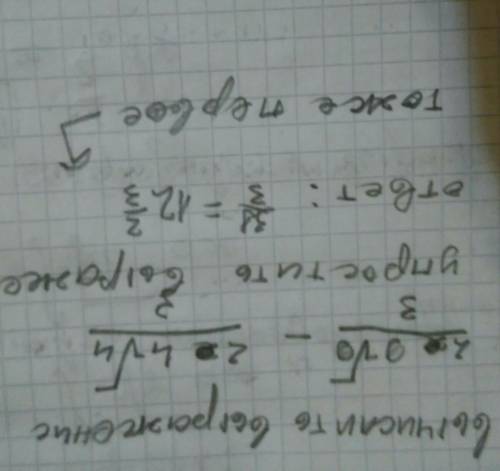 вычислить выражение
2·9√9/3 − 2·4√4/3
упростить выраже
ответ: 38/3 = 12 2/3
тоже первое